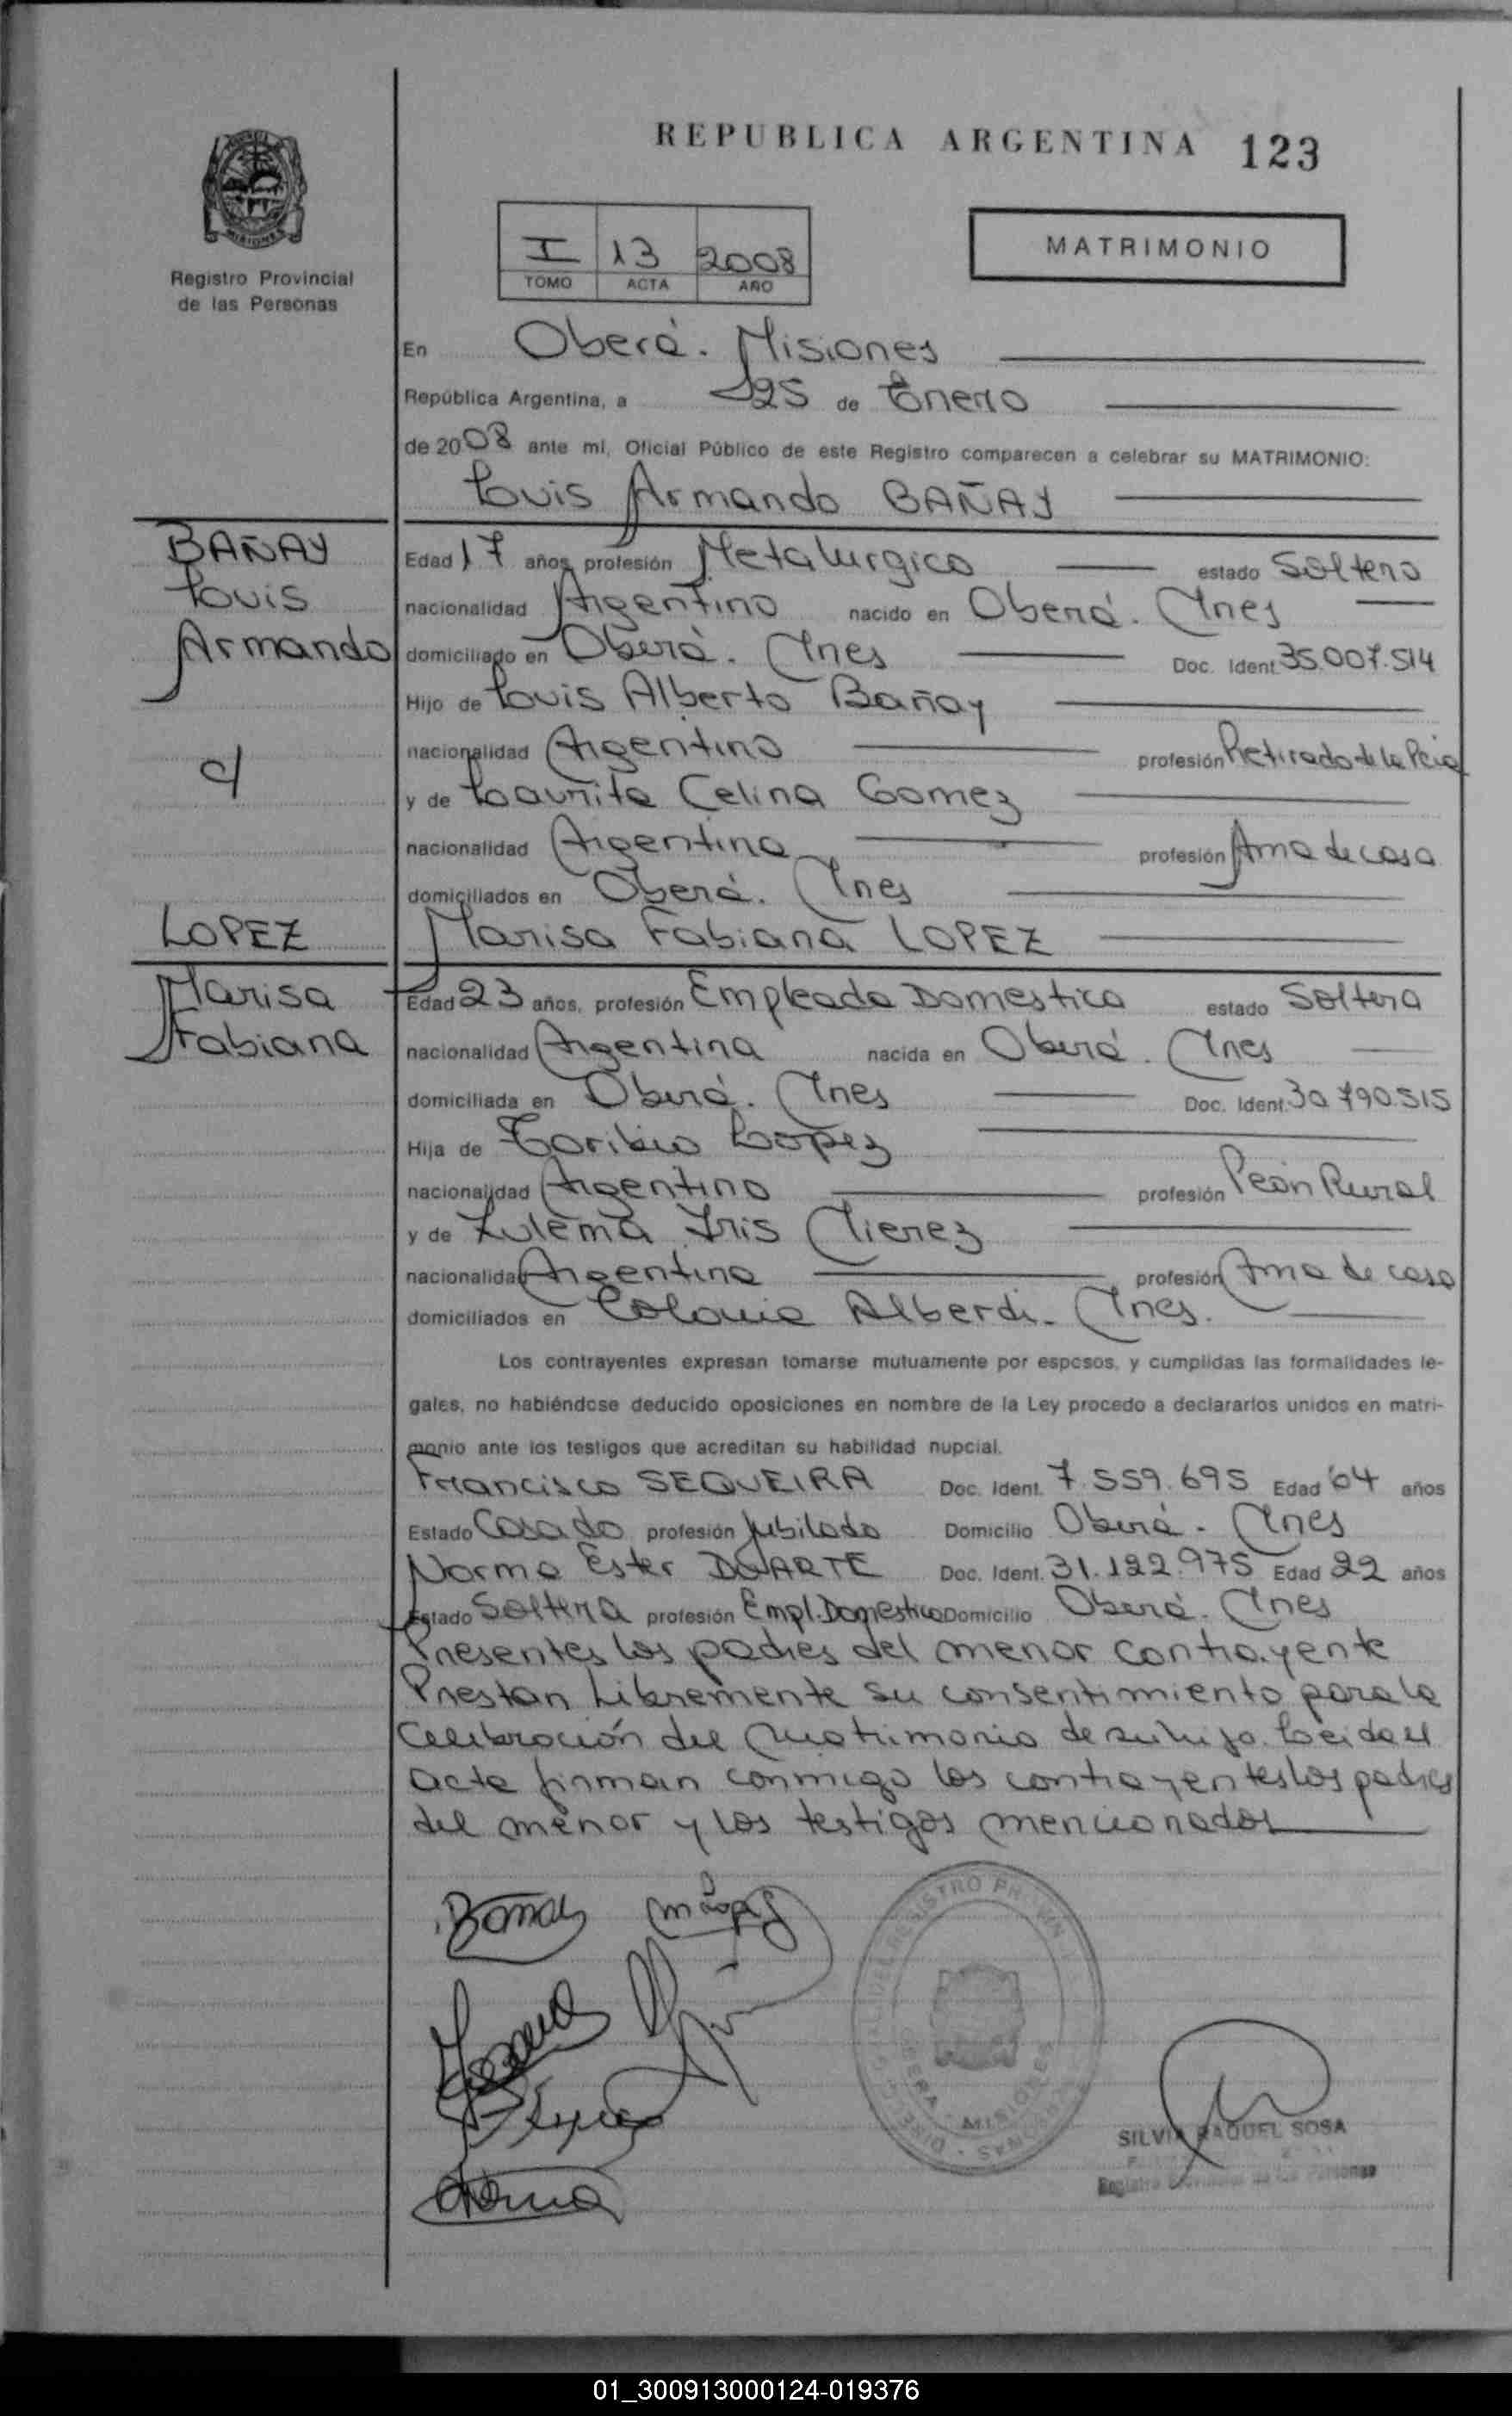 REPUBLICA ARGENTINA 123
MISIONES
Registro Provincial
de las Personas
I 13 2008
TOMO ACTA AÑO
MATRIMONIO
En Oberá. Misiones
República Argentina, a 25 de Enero
de 2008 ante mí, Oficial Público de este Registro comparecen a celebrar su MATRIMONIO:
Louis Armando BAÑAY
BAÑAY
Louis
Armando
c/
LOPEZ
Marisa
Fabiana
Edad 17 años, profesión Metalurgico estado Soltero
nacionalidad Argentino nacido en Oberá. Mnes
domiciliado en Oberá. Mnes Doc. Ident. 35.007.514
Hijo de Louis Alberto Bañay
nacionalidad Argentino profesión Retirado de la Pcia
y de Laurita Celina Gomez
nacionalidad Argentina profesión Ama de casa
domiciliados en Oberá. Mnes
Marisa Fabiana LOPEZ
Edad 23 años, profesión Empleada Domestica estado Soltera
nacionalidad Argentina nacida en Oberá. Mnes
domiciliada en Oberá. Mnes Doc. Ident. 30.790.515
Hija de Toribio Lopez
nacionalidad Argentino profesión Peón Rural
y de Zulema Iris Mierez
nacionalidad Argentina profesión Ama de casa
domiciliados en Colonia Alberdi. Mnes.
Los contrayentes expresan tomarse mutuamente por esposos, y cumplidas las formalidades le-
gales, no habiéndose deducido oposiciones en nombre de la Ley procedo a declararlos unidos en matri-
monio ante los testigos que acreditan su habilidad nupcial.
Francisco SEQUEIRA Doc. Ident. 7.559.695 Edad 64 años
Estado Casado profesión Jubilado Domicilio Oberá. Mnes
Norma Ester DUARTE Doc. Ident. 31.122.975 Edad 22 años
Estado Soltera profesión Empl. Domestica Domicilio Oberá. Mnes
Presentes los padres del menor contrayente
Prestan Libremente su consentimiento para la
Celebración del Matrimonio de su hijo. Leida el
acta firman conmigo los contrayentes los padres
del menor y los testigos mencionados
OBERA MISIONES
SILVIA RAQUEL SOSA
Registro Provincial de las Personas
01_300913000124-019376